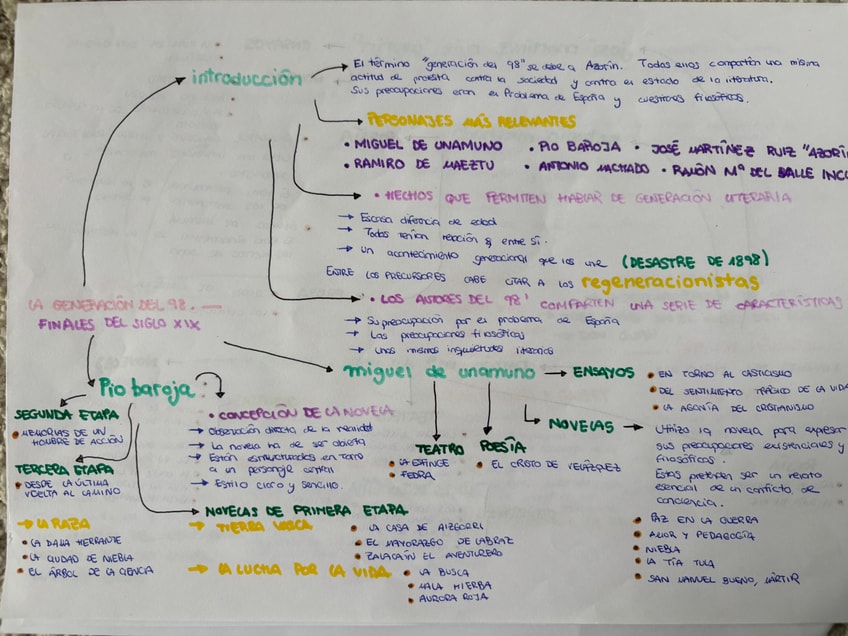 introducción
El término "generación del 98" se debe a Azorín. Todos ellos compartían una misma
actitud de protesta contra la sociedad y contra el estado de la literatura.
Sus preocupaciones eran el Problema de España y cuestiones filosóficas.
PERSONAJES MÁS RELEVANTES
• MIGUEL DE UNAMUNO • PIO BAROJA • JOSÉ MARTÍNEZ RUIZ "AZORÍN
• RAMIRO DE MAEZTU • ANTONIO MACHADO • RAMÓN Mª DEL BALLE INC
• HECHOS QUE PERMITEN HABLAR DE GENERACIÓN LITERARIA
→ Escasa diferencia de edad
→ Todos tenían relación entre sí.
→ un acontecimiento generacional que los une (DESASTRE DE 1898)
ENTRE LOS PRECURSORES CABE CITAR A LOS regeneracionistas
• LOS AUTORES DEL 98' COMPARTEN UNA SERIE DE CARACTERÍSTICAS
→ Su preocupación por el problema de España
→ Las preocupaciones filosóficas
→ Unas mismas inquietudes literarias
LA GENERACIÓN DEL 98. —
FINALES DEL SIGLO XIX
miguel de unamuno → ENSAYOS
• EN TORNO AL CASTICISMO
• DEL SENTIMIENTO TRÁGICO DE LA VIDA
• LA AGONÍA DEL CRISTIANISMO
→ NOVELAS →
Utiliza la novela para expresar
sus preocupaciones existenciales y
filosóficas.
Estas pretenden ser un relato
esencial de un conflicto de
conciencia.
• PAZ EN LA GUERRA
• AMOR Y PEDAGOGÍA
• NIEBLA
• LA TÍA TULA
• SAN MANUEL BUENO, MÁRTIR
TEATRO
• LA ESFINGE
• FEDRA
POESÍA
• EL CRISTO DE VELÁZQUEZ
Pio baroja
• CONCEPCIÓN DE LA NOVELA
→ Observación directa de la realidad
→ La novela ha de ser abierta
→ Están estructurados en torno
a un personaje central
→ Estilo claro y sencillo.
SEGUNDA ETAPA
• MEMORIAS DE UN
HOMBRE DE ACCIÓN
TERCERA ETAPA
• DESDE LA ÚLTIMA
VUELTA AL CAMINO
→ NOVELAS DE PRIMERA ETAPA
→ TIERRA VASCA
• LA CASA DE AIZGORRI
• EL MAYORAZGO DE LABRAZ
• ZALACAÍN EL AVENTURERO
→ LA LUCHA POR LA VIDA
• LA BUSCA
• MALA HIERBA
• AURORA ROJA
→ LA RAZA
• LA DAMA ERRANTE
• LA CIUDAD DE NIEBLA
• EL ÁRBOL DE LA CIENCIA